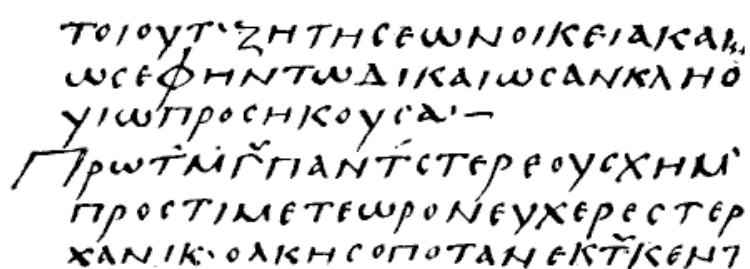 ΤΟΙΟΥΤ'ΖΗΤΗϹΕΩΝΟΙΚΕΙΑΚΑΙ
ΩϹΕΦΗΝΤΩΔΙΚΑΙΩϹΑΝΚΛΗΟ
ΥΙΩΠΡΟϹΗΚΟΥϹΑ·—
ΠΡΩΤ'Μ'Γ'ΠΑΝΤ'ϹΤΕΡΕΟΥϹΧΗΜ'
ΠΡΟϹΤΙΜΕΤΕΩΡΟΝΕΥΧΕΡΕϹΤΕΡ
ΧΑΝΙΚ·ΟΛΚΗϹΟΠΟΤΑΝΕΚΤ'ΚΕΝΤ